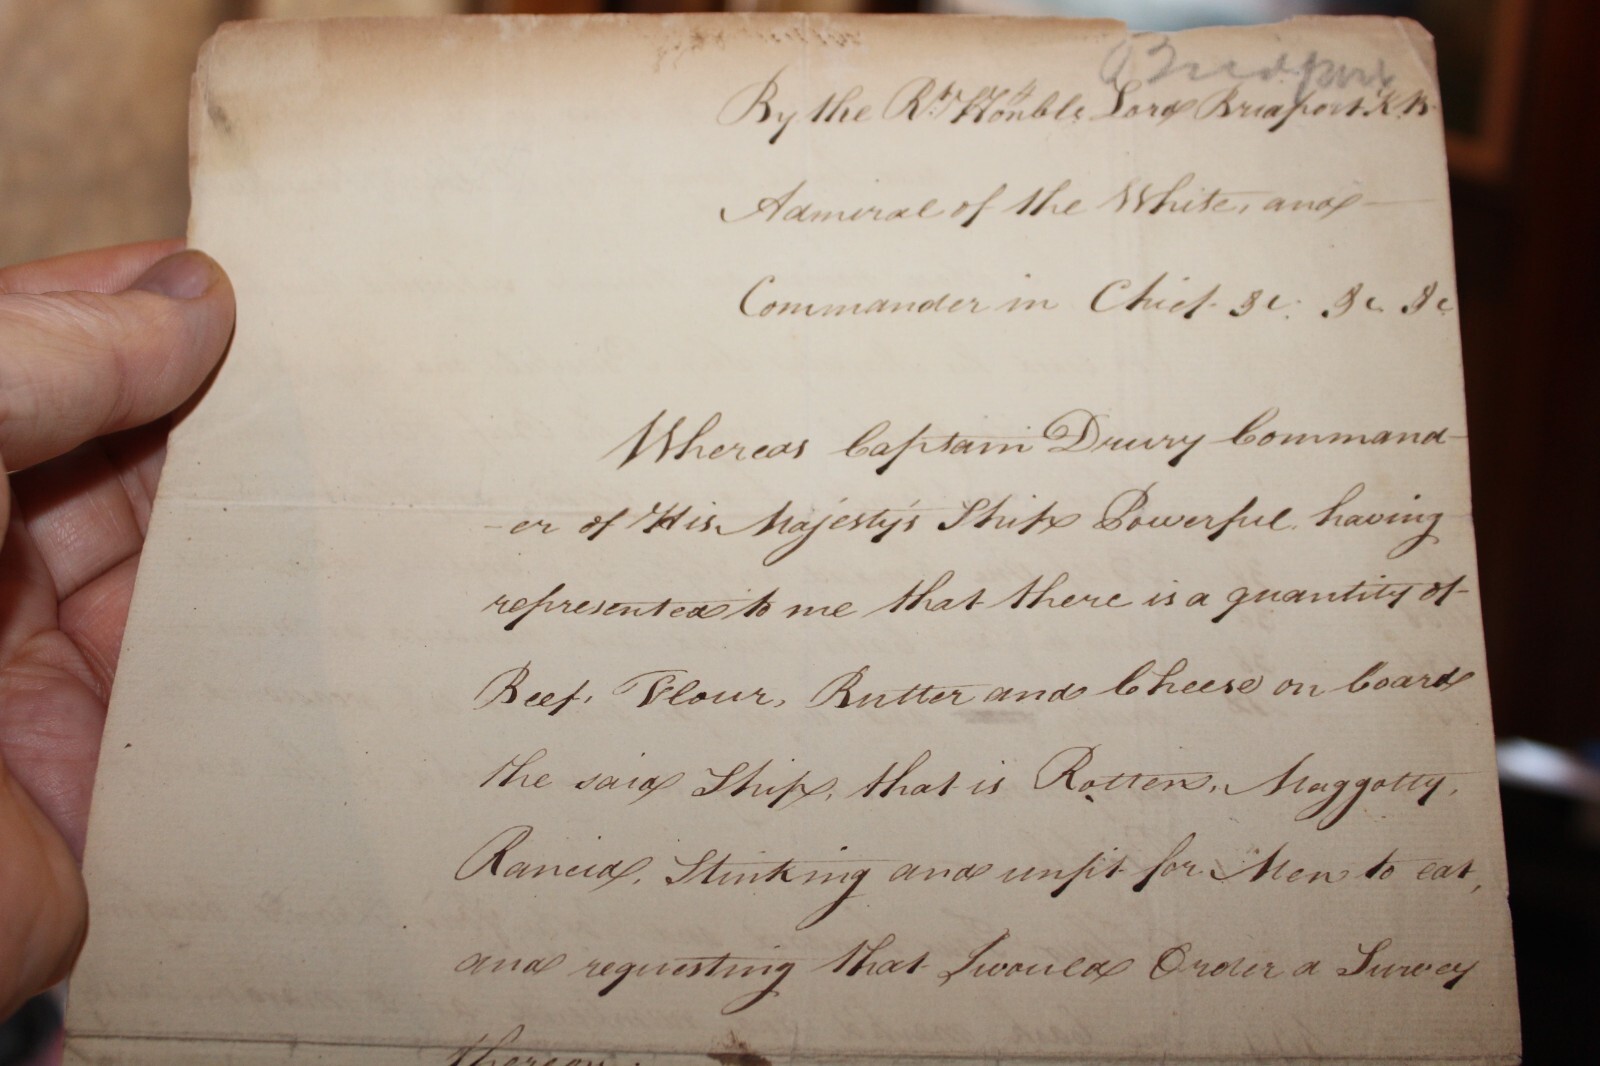 Bridport
By the Rt. Honble Lord Bridport K.B.
Admiral of the White, and
Commander in Chief &c. &c &c
Whereas Captain Drury Command-
-er of His Majesty's Ship Powerful having
represented to me that there is a quantity of
Beef, Flour, Butter and Cheese on board
the said Ship, that is Rotten, Maggotty,
Rancid, Stinking and unfit for Men to eat,
and requesting that I would Order a Survey
thereon;